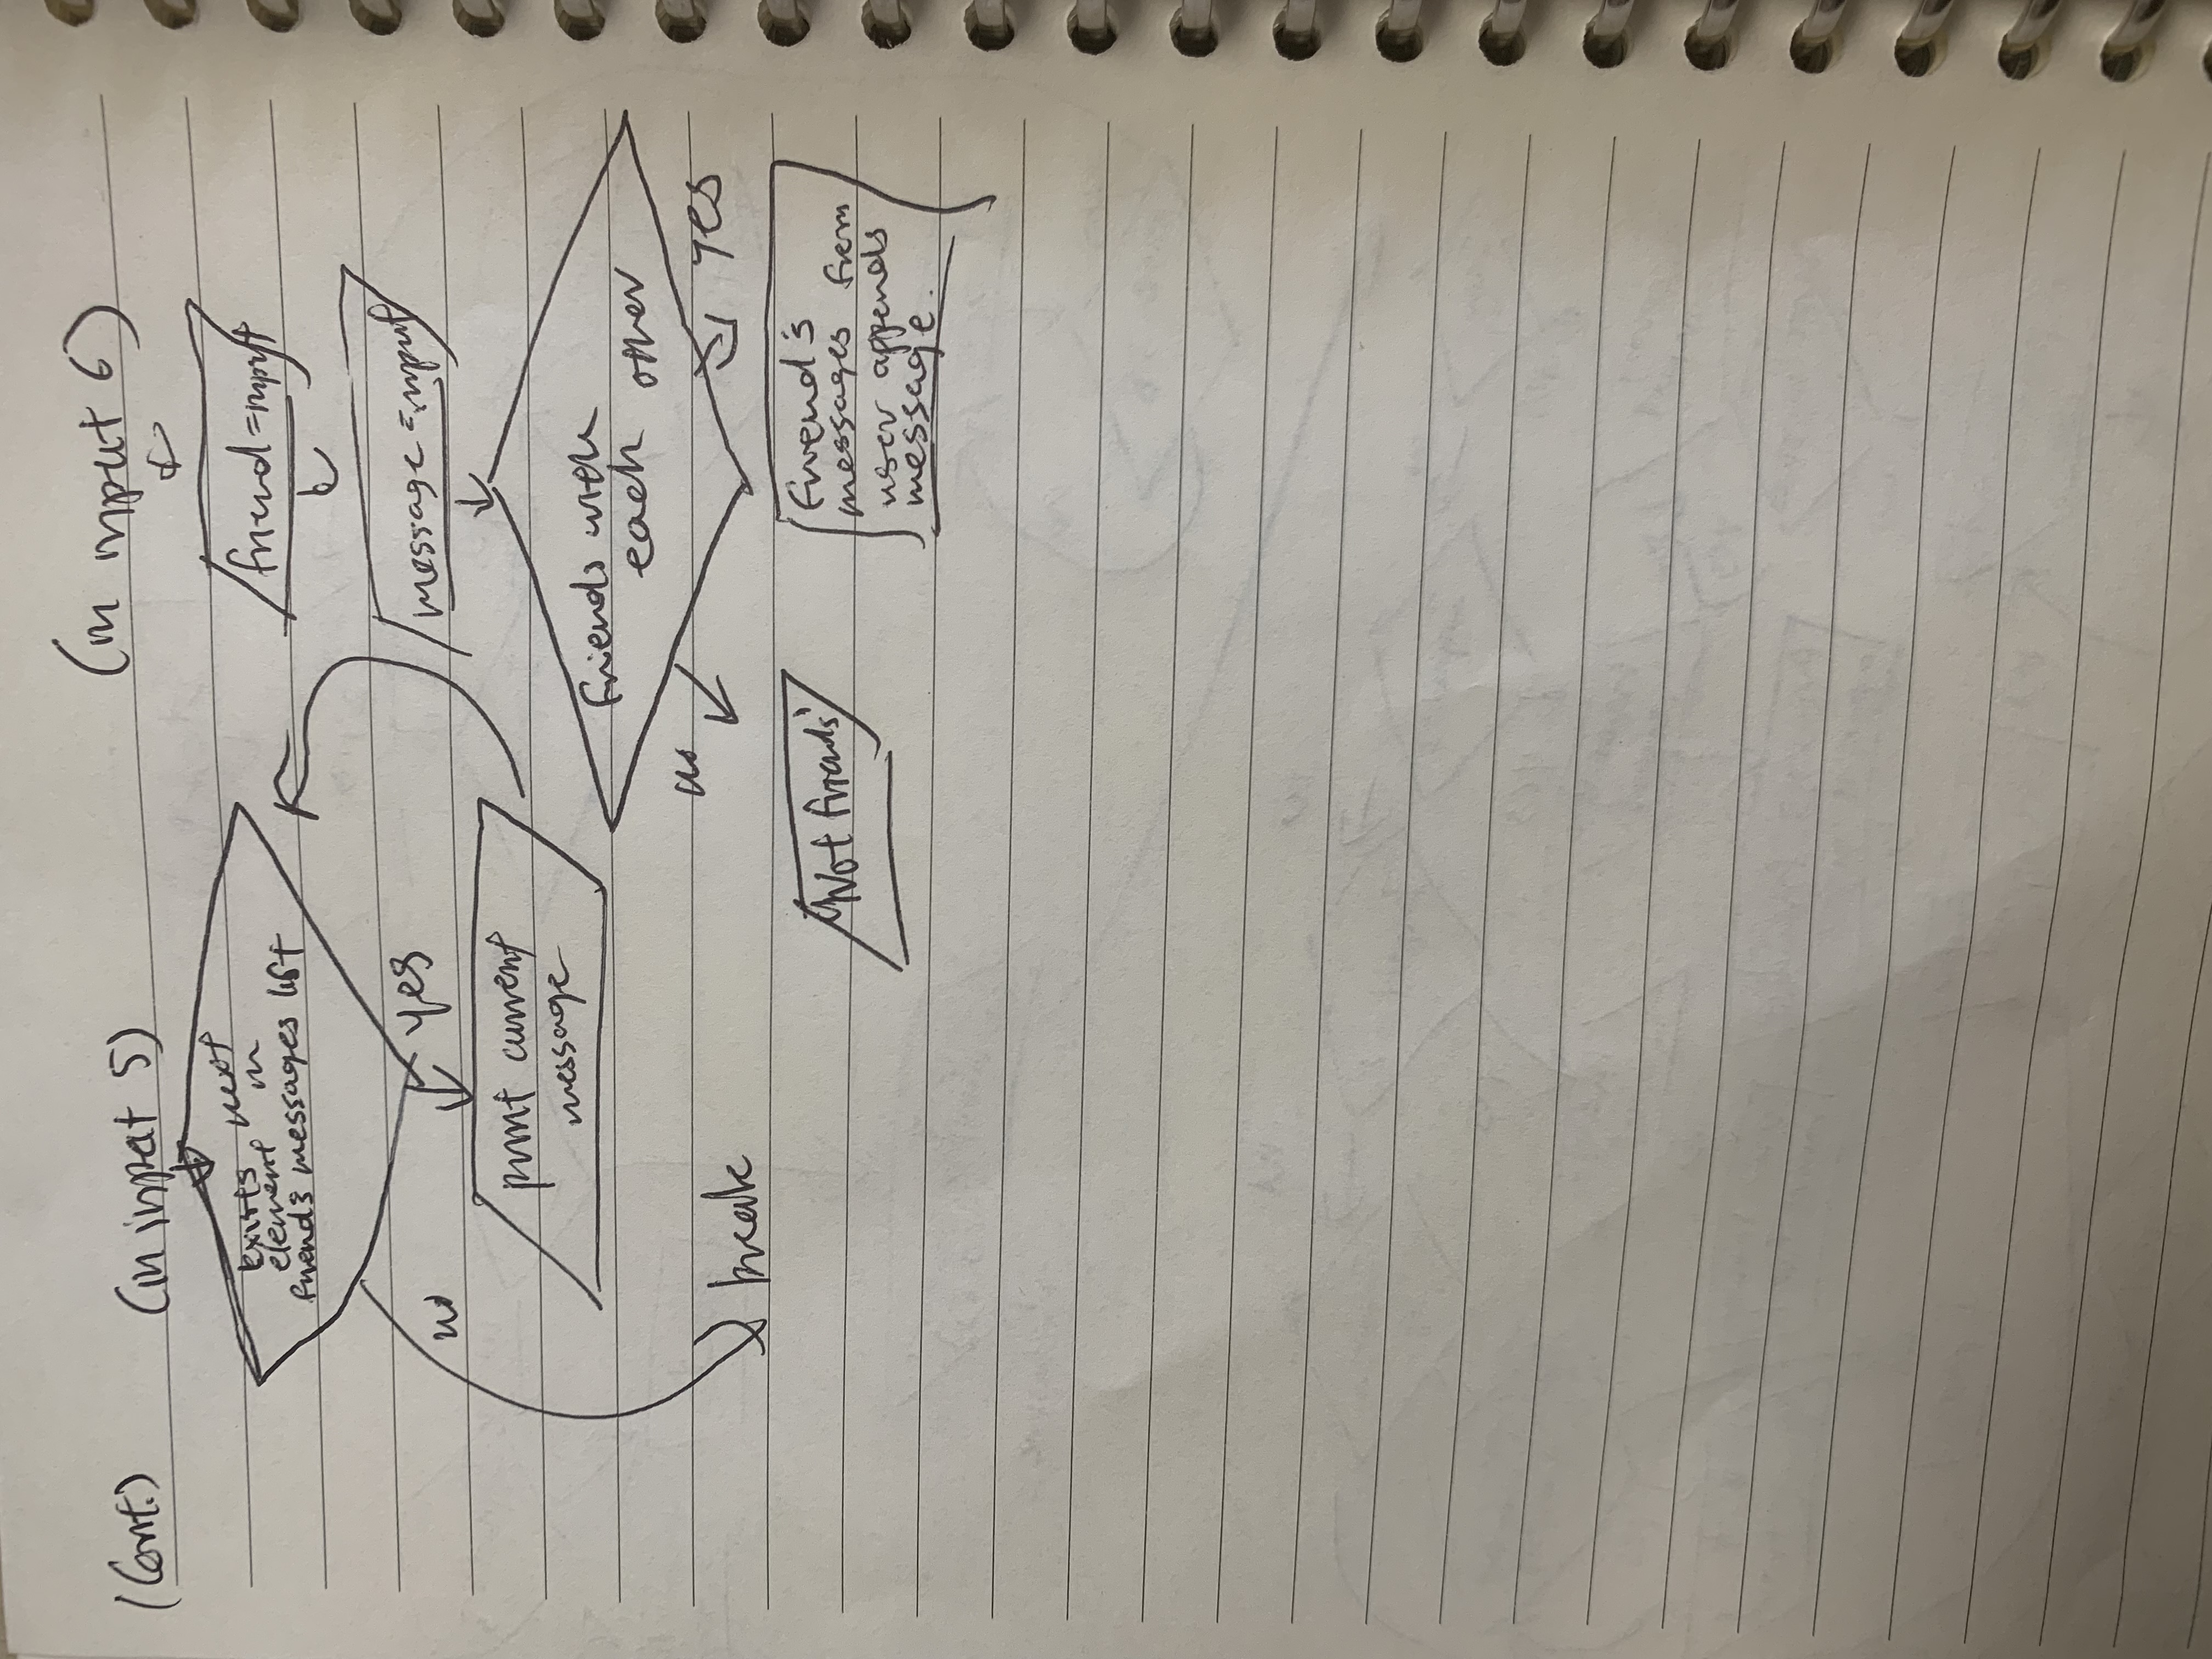 (Cont.)
(in input 5)
exists next
element in
friend's messages list
no
yes
print current
message
break
(in input 6)
friend = input
message = input
friends with
each other
no
yes
"Not friends"
friend's
messages from
user appends
message.